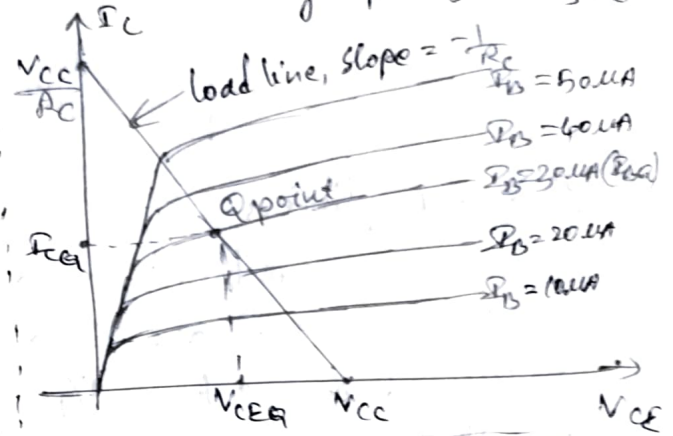 I_C
V_CC / R_C
load line, slope = -1/R_C
I_B = 50 μA
I_B = 40 μA
Q point
I_B = 30 μA (I_BQ)
I_CQ
I_B = 20 μA
I_B = 10 μA
V_CEQ V_CC V_CE